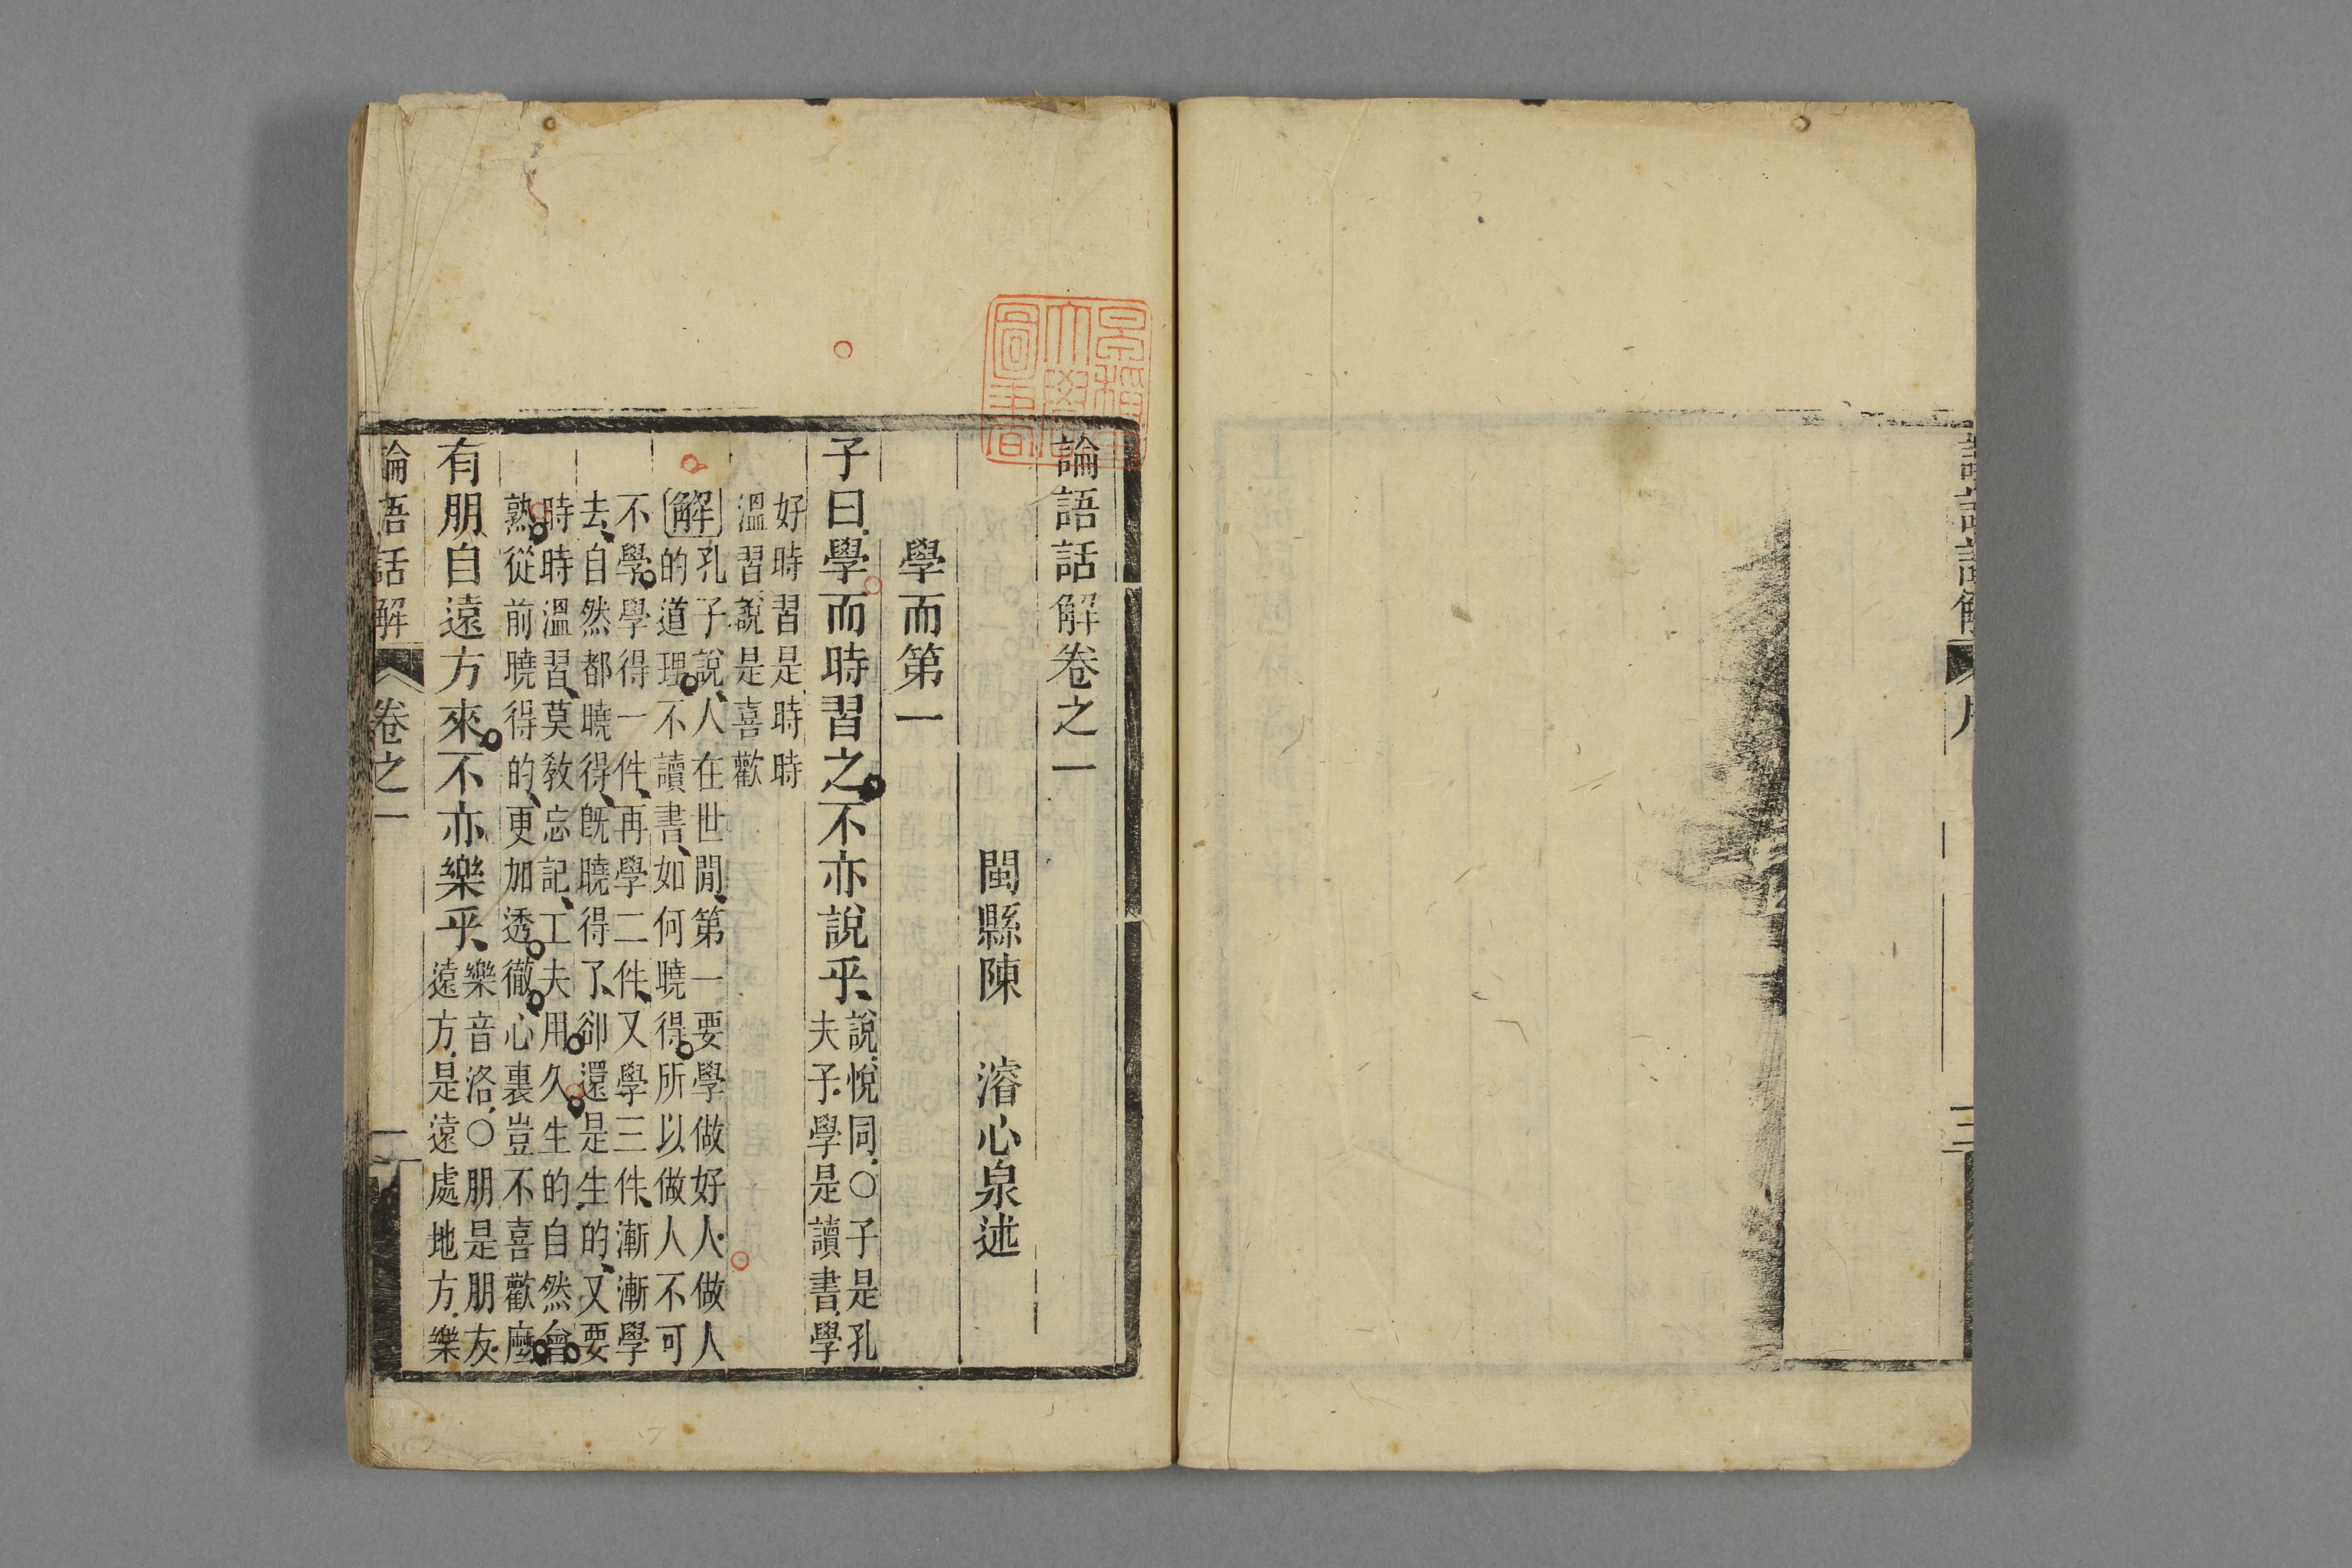 論語話解卷之一
閩縣陳　濬心泉述
學而第一
子曰學而時習之不亦說乎、說悅同○子是孔
夫子學是讀書學
好時習是時時
溫習說是喜歡
解孔子說、人在世閒、第一要學做好人做人
的道理不讀書、如何曉得所以做人不可
不學學得一件、再學二件、又學三件、漸漸學
去、自然都曉得、旣曉得了、卻還是生的、又要
時時溫習、莫敎忘記、工夫用久生的自然會
熟從前曉得的、更加透徹心裏豈不喜歡麼
有朋自遠方來不亦樂乎、樂音洛○朋是朋友
遠方是遠處地方樂
論語話解　卷之一　一
早稻田大學圖書